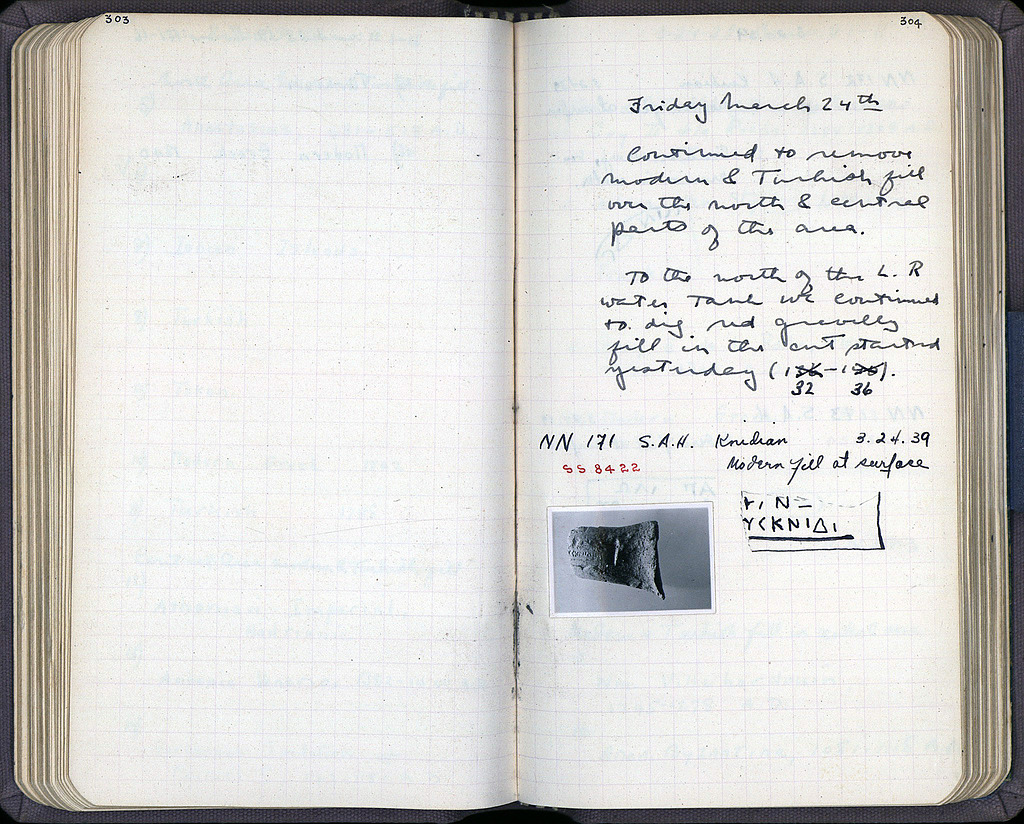 303
304
Friday March 24th
Continued to remove
modern & Turkish fill
over the north & central
parts of the area.
To the north of the L. R
water Tank we continued
to dig red gravelly
fill in the cut started
yesterday (136-136).
32 36
NN 171 S.A.H. Knidian 3.24.39
SS 8422 Modern fill at surface
ΥϹΚΝΙΔΙ